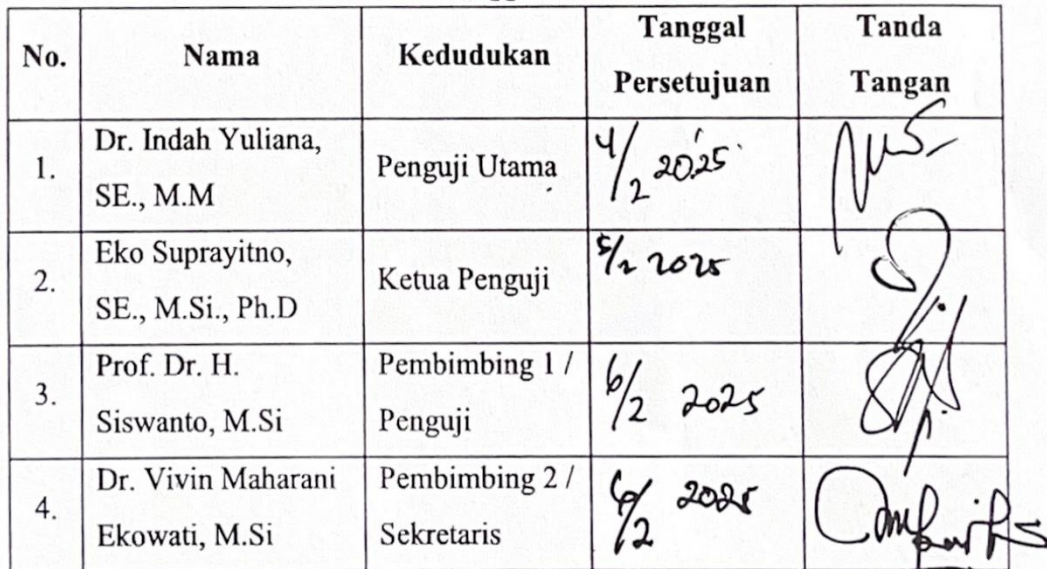 No.
Nama
Kedudukan
Tanggal
Persetujuan
Tanda
Tangan
1.
Dr. Indah Yuliana,
SE., M.M
Penguji Utama
4/2 2025
2.
Eko Suprayitno,
SE., M.Si., Ph.D
Ketua Penguji
5/2 2025
3.
Prof. Dr. H.
Siswanto, M.Si
Pembimbing 1 /
Penguji
6/2 2025
4.
Dr. Vivin Maharani
Ekowati, M.Si
Pembimbing 2 /
Sekretaris
6/2 2025